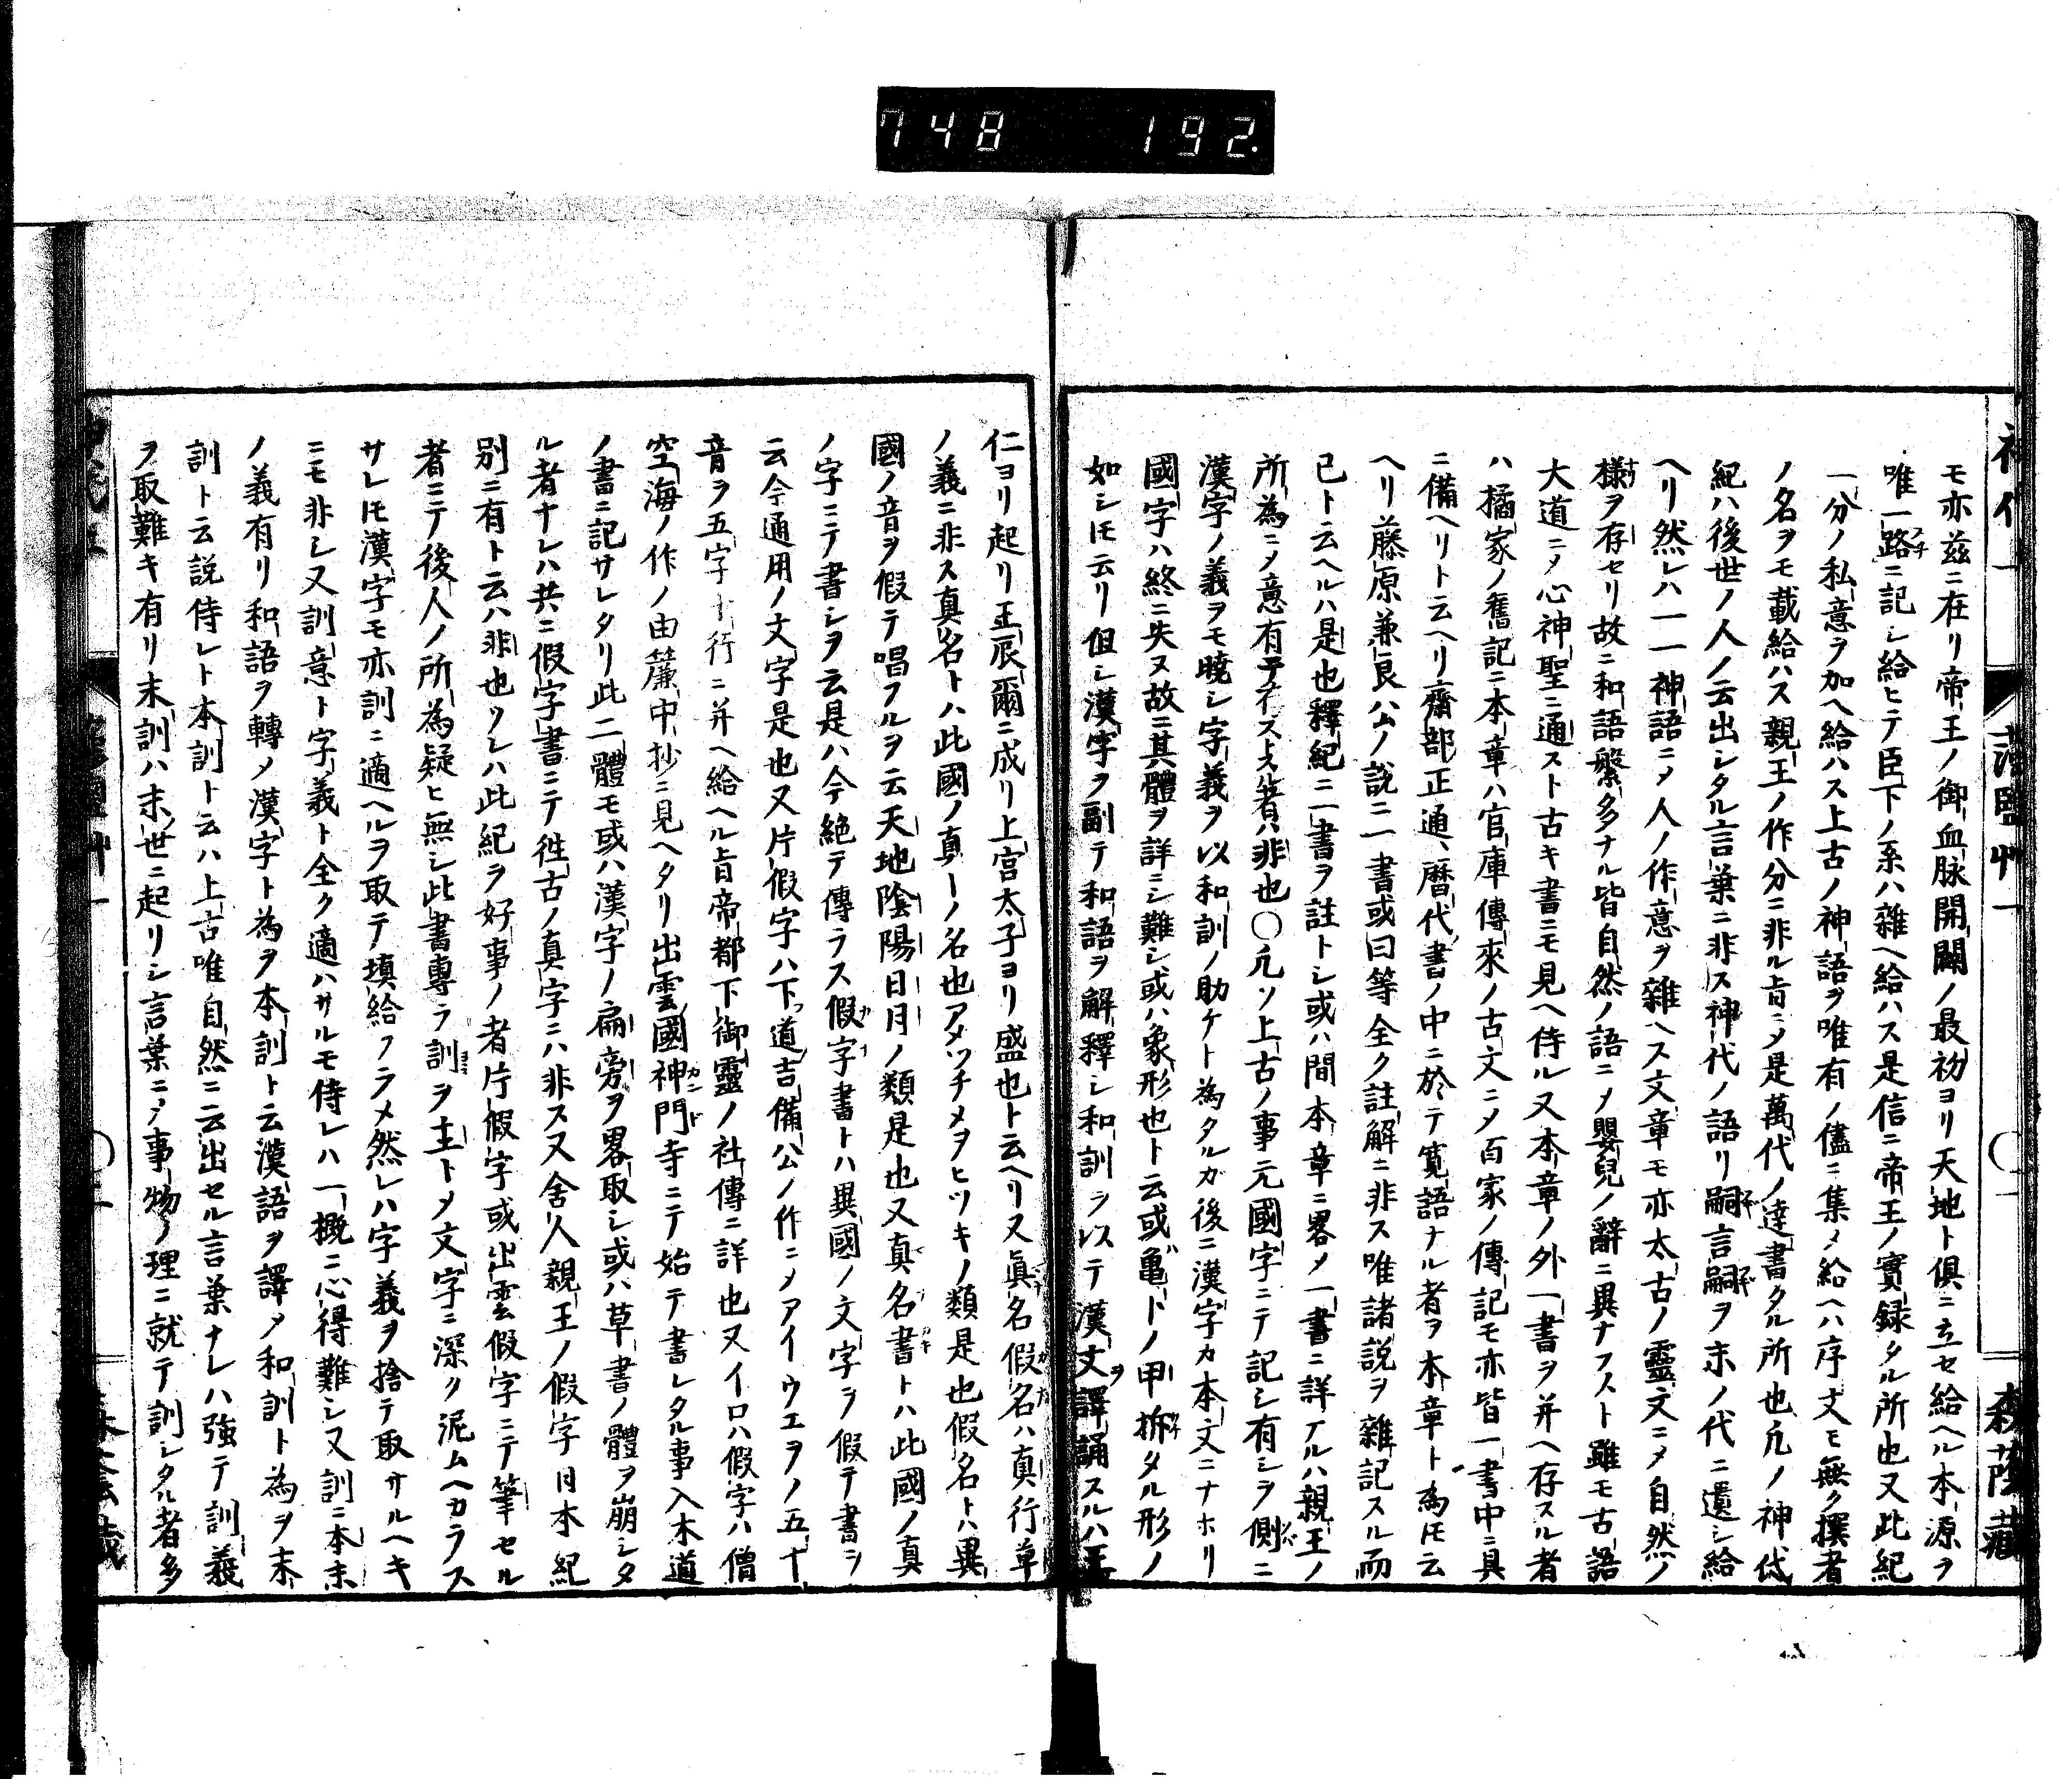 748 192.
モ亦茲ニ在リ帝王ノ御血脉開闢ノ最初ヨリ天地ト倶ニ立セ給ヘル本源ヲ
唯一路ニ記シ給ヒテ臣下ノ系ハ雜ヘ給ハス是信ニ帝王ノ實録タル所也又此紀
一分ノ私意ヲ加ヘ給ハス上古ノ神語ヲ唯有ノ儘ニ集メ給ヘハ序文モ無ク撰者
ノ名ヲモ載給ハス親王ノ作分ニ非ル旨ニメ是萬代ノ達書タル所也凡ノ神代
紀ハ後世ノ人ノ云出シタル言葉ニ非ス神代ノ語リ嗣言嗣ヲ末ノ代ニ遺シ給
ヘリ然レハ一一神語ニメ人ノ作意ヲ雜ヘス文章モ亦太古ノ靈文ニメ自然ノ
様ヲ存セリ故ニ和語繁多ナル皆自然ノ語ニメ嬰兒ノ辭ニ異ナラスト雖モ古語
大道ニメ心神聖ニ通スト古キ書ニモ見ヘ侍ル又本章ノ外一書ヲ并ヘ存スル者
ハ橘家ノ舊記ニ本章ハ官庫傳來ノ古文ニメ百家ノ傳記モ亦皆一書中ニ具
ニ備ヘリト云ヘリ齋部正通、暦代書ノ中ニ於テ寛語ナル者ヲ本章ト為トモ云
ヘリ藤原兼良公ノ説ニ一書或曰等全ク註解ニ非ス唯諸説ヲ雜記スル而
已ト云ヘルハ是也釋紀ニ一書ヲ註トシ或ハ間本章ニ畧メ一書ニ詳ナルハ親王ノ
所為ニメ意有 者ハ非也〇凡ソ上古ノ事元國字ニテ記シ有シヲ側ニ
漢字ノ義ヲモ曉シ字義ヲ以和訓ノ助ケト為タルカ後ニ漢字カ本文ニナホリ
國字ハ終ニ失ヌ故ニ其體ヲ詳ニシ難シ或ハ象形也ト云或亀卜ノ甲拆タル形ノ
如シトモ云リ但シ漢字ヲ副テ和語ヲ解釋シ和訓ヲ以テ漢文ヲ譯誦スルハ王
仁ヨリ起リ王辰爾ニ成リ上宮太子ヨリ盛也ト云ヘリ又眞名假名ハ真行草
ノ義ニ非ス真名トハ此國ノ真ーノ名也アメツチメヲヒツキノ類是也假名トハ異
國ノ音ヲ假テ唱フルヲ云天地陰陽日月ノ類是也又真名書トハ此國ノ真
ノ字ニテ書シヲ云是ハ今絶テ傳ラス假字書トハ異國ノ文字ヲ假テ書シヲ
云今通用ノ文字是也又片假字ハ下道吉備公ノ作ニメアイウエヲノ五十
音ヲ五字十行ニ并ヘ給ヘル旨帝都下御靈ノ社傳ニ詳也又イロハ假字ハ僧
空海ノ作ノ由簾中抄ニ見ヘタリ出雲國神門寺ニテ始テ書レタル事入木道
ノ書ニ記サレタリ此二體モ或ハ漢字ノ扁旁ヲ畧取シ或ハ草書ノ體ヲ崩シタ
ル者ナレハ共ニ假字書ニテ徃古ノ真字ニハ非ス又舎人親王ノ假字日本紀
別ニ有ト云ハ非也ソレハ此紀ヲ好事ノ者片假字或出雲假字ニテ筆セル
者ニテ後人ノ所為疑ヒ無シ此書專ラ訓ヲ主トメ文字ニ深ク泥ムヘカラス
サレトモ漢字モ亦訓ニ適ヘルヲ取テ填給フラメ然レハ字義ヲ捨テ取サルヘキ
ニモ非シ又訓意ト字義ト全ク適ハサルモ侍レハ一概ニ心得難シ又訓ニ本末
ノ義有リ和語ヲ轉メ漢字ト為ヲ本訓ト云漢語ヲ譯メ和訓ト為ヲ末
訓ト云説侍レト本訓ト云ハ上古唯自然ニ云出セル言葉ナレハ強テ訓義
ヲ取難キ有リ末訓ハ末ノ世ニ起リシ言葉ニメ事物ノ理ニ就テ訓シタル者多